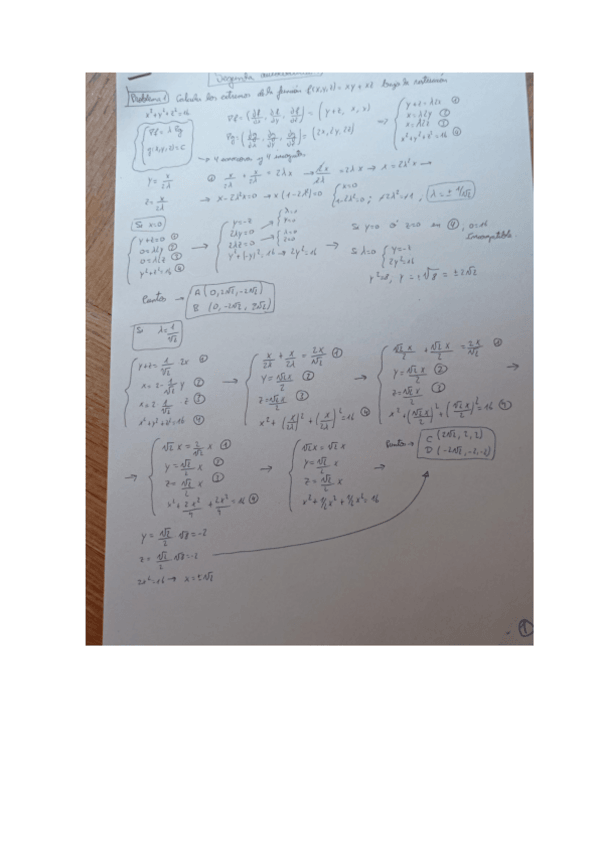 Segunda
Problema 1) Calcula los extremos de la función f(x,y,z) = xy + xz bajo la restricción
x²+y²+z²=16
∇f = λ∇g
g(x,y,z)=c
∇f = (∂f/∂x, ∂f/∂y, ∂f/∂z) = (y+z, x, x)
∇g = (∂g/∂x, ∂g/∂y, ∂g/∂z) = (2x, 2y, 2z)
⇒ y+z=λ2x ①
x=λ2y ②
x=λ2z ③
x²+y²+z²=16 ④
→ 4 ecuaciones y 4 incógnitas
y = x/2λ
z = x/2λ
① x/2λ + x/2λ = 2λx → 2x/2λ = 2λx → x = 2λ²x →
→ x-2λ²x=0 → x(1-2λ²)=0
x=0
1-2λ²=0; 2λ²=1, λ=±1/√2
Si x=0
y+z=0 ①
0=λ2y ②
0=λ2z ③
y²+z²=16 ④
→ y=-z
2λy=0 λ=0 y=0
2λz=0 λ=0 z=0
y²+(-y)²=16 → 2y²=16
→ Si y=0 ó z=0 en ④, 0=16
Incompatible
Si λ=0 y=-z
2y²=16
y²=8, y=±√8=±2√2
Puntos → A (0, 2√2, -2√2)
B (0, -2√2, 2√2)
Si λ=1/√2
y+z=1/√2 2x ①
x=2·1/√2 y ②
x=2·1/√2 z ③
x²+y²+z²=16 ④
→ x/2λ + x/2λ = 2x/√2 ①
y=√2x/2 ②
z=√2x/2 ③
x²+(x/2λ)²+(x/2λ)²=16 ④
→ √2x/2 + √2x/2 = 2x/√2 ①
y=√2x/2 ②
z=√2x/2 ③
x²+(√2x/2)²+(√2x/2)²=16 ④ →
→ √2 x = 2/√2 x ①
y=√2/2 x ②
z=√2/2 x ③
x²+2x²/4+2x²/4=16 ④
→ √2x=√2x
y=√2/2 x
z=√2/2 x
x²+1/2x²+1/2x²=16
→ Puntos → C (2√2, 2, 2)
D (-2√2, -2, -2)
y=√2/2 √8=-2
z=√2/2 √8=-2
2x²=16 → x=±√2
①